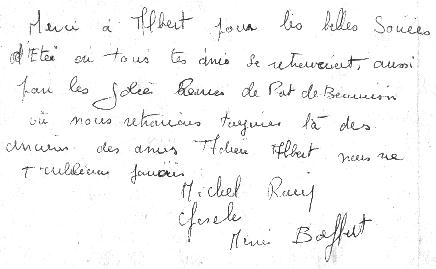 Merci à Albert pour les belles Soirées
d'Eté où tous tes amis se retrouvaient, aussi
pour les Soirées de de
où nous retrouvions toujours là des
anciens des amis Adieu Albert nous ne
t'oublierons jamais
Michel
Gisele
Mimi